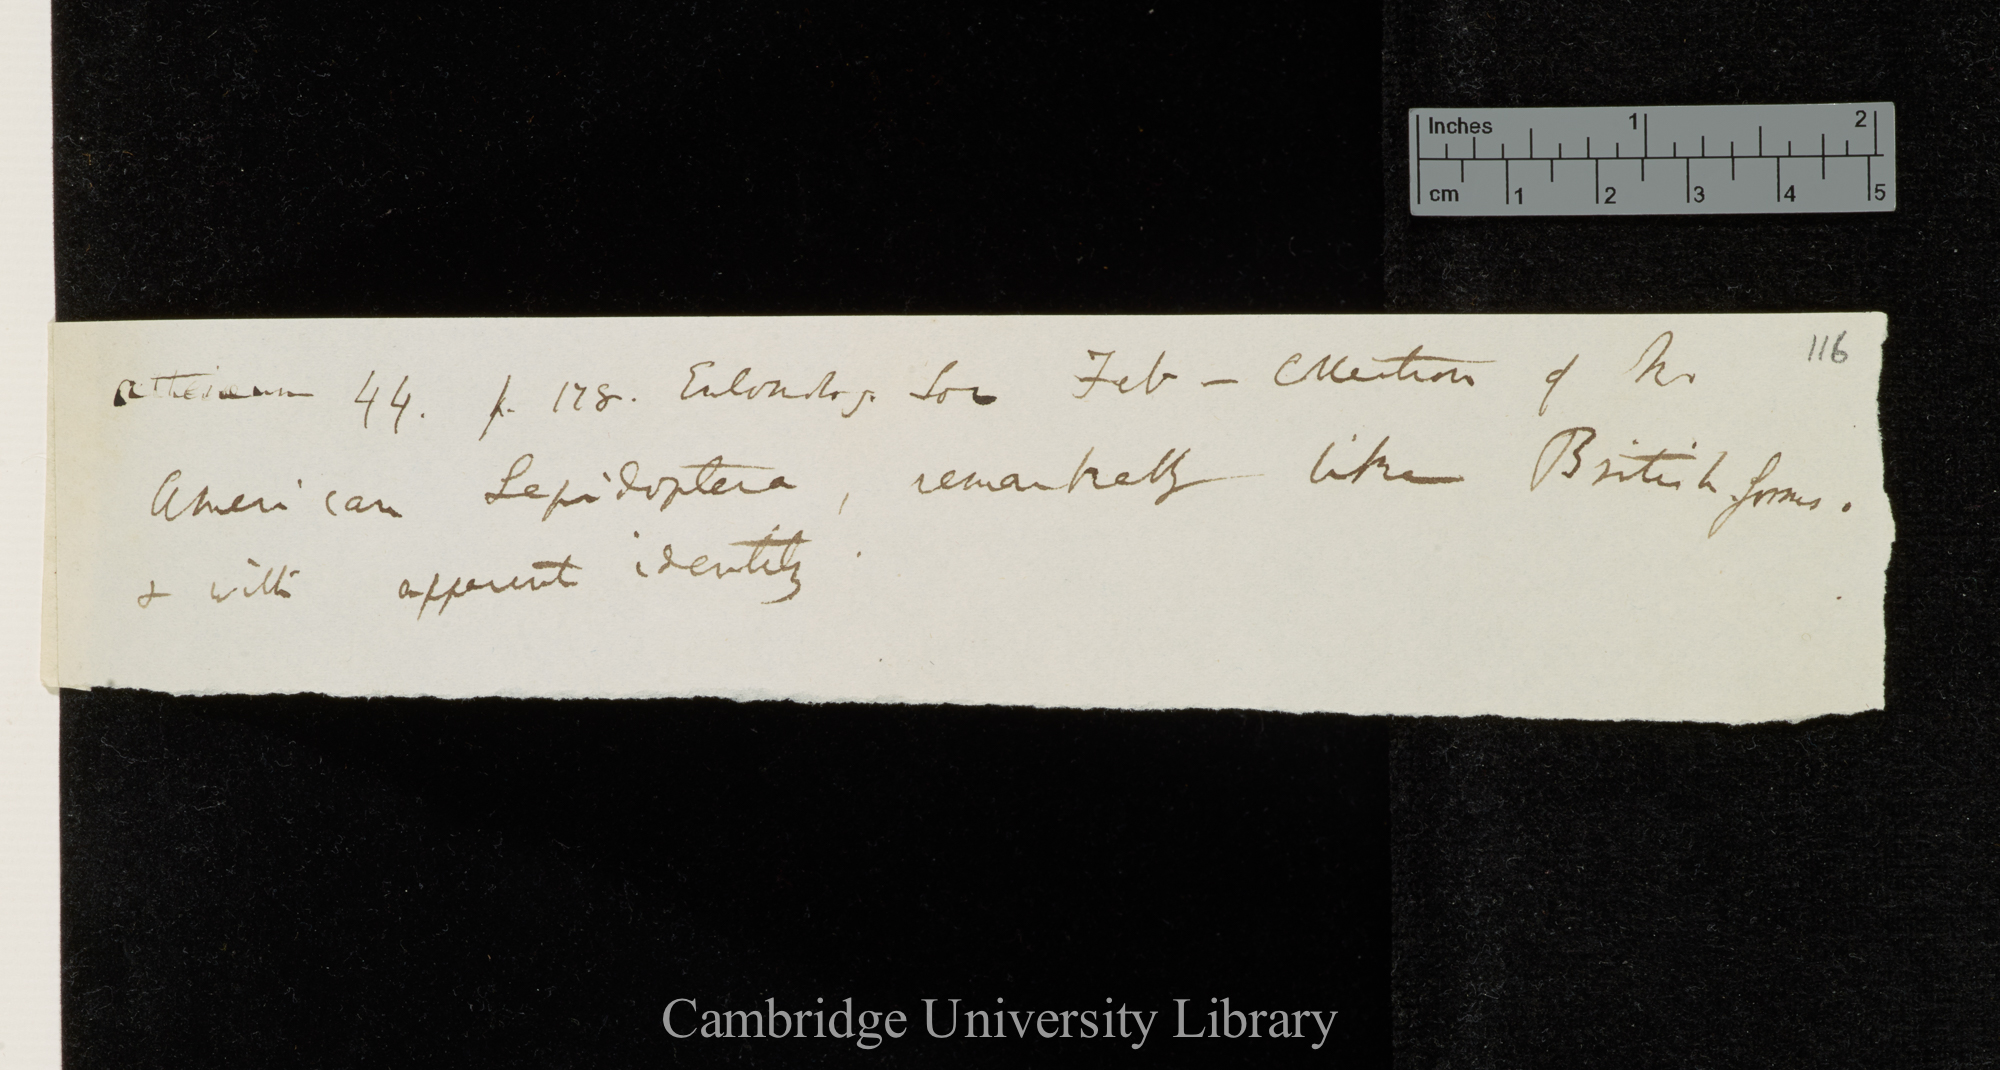 Inches 1 2
cm 1 2 3 4 5
116
Athenæum 44. p. 178. Entomolog. Soc Feb — Collection of N.
American Lepidoptera, remarkably like British forms.
& with apparent identity.
Cambridge University Library